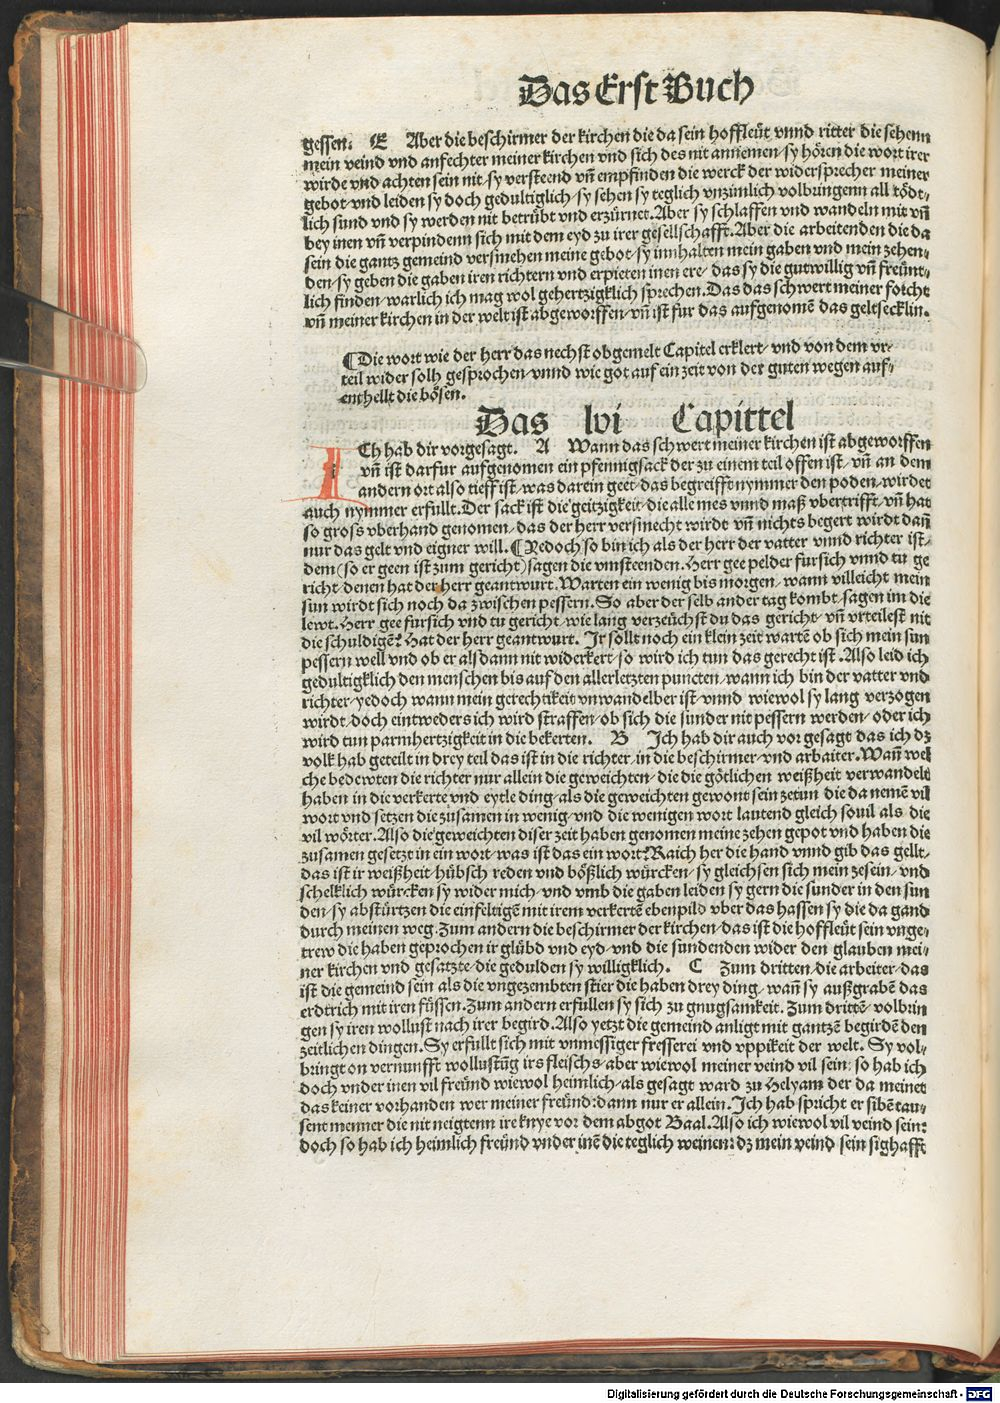 Das Erst Buch
gessen. E Aber die beschirmer der kirchen die da sein hoffleüt vnnd ritter die sehenn
mein veind vnd anfechter meiner kirchen vnd sich des nit annemen/ sy hören die wort irer
wirde vnd achten sein nit/ sy versteend vñ empfinden die werck der widersprecher meiner
gebot/ vnd leiden sy doch gedultiglich/ sy sehen sy teglich vnzimlich volbringenn all tödt/
lich sund vnd sy werden nit betrübt vnd erzürnet. Aber sy schlaffen vnd wandeln mit vñ
bey inen vñ verpindenn sich mit dem eyd zu irer gesellschafft. Aber die arbeitenden die da
sein die gantz gemeind versmehen meine gebot/ sy innhalten mein gaben vnd mein zehen/
den/ sy geben die gaben iren richtern vnd erpieten inen ere/ das sy die gutwillig vñ freünt/
lich finden/ warlich ich mag wol gehertzigklich sprechen. Das das schwert meiner forcht
vñ meiner kirchen in der welt ist abgeworffen/ vñ ist fur das aufgenomē das geltsecklin.
¶ Die wort wie der herr das nechst obgemelt Capitel erklert/ vnd von dem vr/
teil wider solh gesprochen/ vnnd wie got auf ein zeit von der guten wegen auf/
enthellt die bösen.
Das lvi Capittel
ICh hab dir vorgesagt. A Wann das schwert meiner kirchen ist abgeworffen
vñ ist darfur aufgenomen ein pfennigsack der zu einem teil offen ist/ vñ an dem
andern ort also tieff ist/ was darein geet/ das begreifft nymmer den poden/ wirdet
auch nymmer erfullt. Der sack ist die geitzigkeit/ die alle mes vnnd maß vbertrifft/ vñ hat
so gross vberhand genomen/ das der herr versmecht wirdt vñ nichts begert wirdt dañ
nur das gelt vnd eigner will. ¶ Yedoch so bin ich als der herr der vatter vnnd richter ist/
dem (so er geen ist zum gericht) sagen die vmsteenden. Herr gee pelder fursich vnnd tu ge
richt/ denen hat der herr geantwurt. Warten ein wenig bis morgen/ wann villeicht mein
sun wirdt sich noch da zwischen pessern. So aber der selb ander tag kombt/ sagen im die
lewt. Herr gee fursich vnd tu gericht/ wie lang verzeüchst du das gericht/ vñ vrteilest nit
die schuldigē? Hat der herr geantwurt. Ir söllt noch ein klein zeit wartē ob sich mein sun
pessern well vnd ob er alsdann nit widerkert/ so wird ich tun das gerecht ist. Also leid ich
gedultigklich den menschen bis auf den allerletzten puncten/ wann ich bin der vatter vnd
richter/ yedoch wann mein gerechtikeit vnwandelber ist/ vnnd wiewol sy lang verzogen
wirdt/ doch eintweders ich wird straffen/ ob sich die sunder nit pessern werden/ oder ich
wird tun parmhertzigkeit in die bekerten. B Ich hab dir auch vor gesagt das ich dz
volk hab geteilt in drey teil das ist in die richter/ in die beschirmer/ vnd arbaiter. Wañ wel
che bedewten die richter nur allein die geweichten/ die die götlichen weißheit verwandelt
haben in die verkerte vnd eytle ding/ als die geweichten gewont sein zetun die da nemē vil
wort vnd setzen die zusamen in wenig/ vnd die wenigen wort lautend gleich souil als die
vil wörter. Also die geweichten diser zeit haben genomen meine zehen gepot vnd haben die
zusamen gesetzt in ein wort/ was ist das ein wort? Raich her die hand vnnd gib das gellt/
das ist ir weißheit/ hübsch reden vnd bößlich würcken/ sy gleichsen sich mein zesein/ vnd
schelklich würcken sy wider mich/ vnd vmb die gaben leiden sy gern die sunder in den sun
den/ sy abstürtzen die einfeltigē mit irem verkertē ebenpild vber das hassen sy die da gand
durch meinen weg. Zum andern die beschirmer der kirchen/ das ist die hoffleüt sein vnge/
trew die haben geprochen ir glübd vnd eyd/ vnd die sundenden wider den glauben mei/
ner kirchen vnd gesatzte/ die gedulden sy willigklich. C Zum dritten/ die arbeiter/ das
ist die gemeind sein als die vngezembten stier die haben drey ding/ wañ sy außgrabē das
erdtrich mit iren füssen. Zum andern erfullen sy sich zu gnugsamkeit. Zum drittē/ volbrin
gen sy iren wollust nach irer begird. Also yetzt die gemeind anligt mit gantzē begirdē den
zeitlichen dingen. Sy erfullt sich mit vnmessiger fresserei vnd vppikeit der welt. Sy vol/
bringt on vernunfft wollustūg irs fleischs/ aber wiewol meiner veind vil sein: so hab ich
doch vnder inen vil freünd wiewol heimlich/ als gesagt ward zu Helyam der da meinet
das keiner vorhanden wer meiner freünd: dann nur er allein. Ich hab spricht er sibē tau/
sent menner die nit neigtenn ire knye vor dem abgot Baal. Also ich wiewol vil veind sein:
doch so hab ich heimlich freünd vnder inē die teglich weinen: dz mein veind sein sighafft
Digitalisierung gefördert durch die Deutsche Forschungsgemeinschaft - DFG